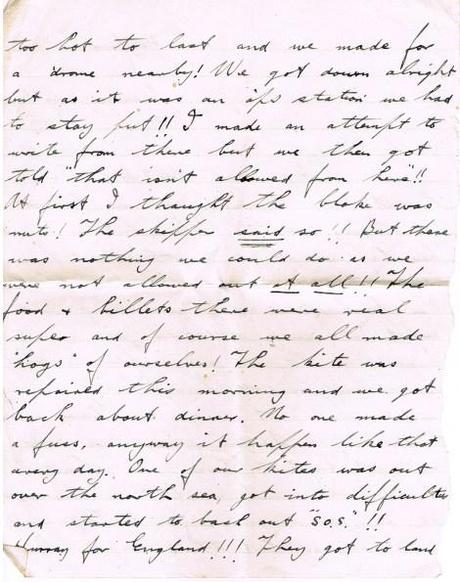 too hot to last and we made for
a 'drome nearby! We got down alright
but as it was an ops station we had
to stay put!! I made an attempt to
write from there but we then got
told "that isn't allowed from here"!!
At first I thought the bloke was
nuts! The skipper said so!!! But there
was nothing we could do as we
were not allowed out at all!! The
food & billets there were real
super and of course we all made
'hogs' of ourselves! The kite was
repaired this morning and we got
back about dinner. No one made
a fuss, anyway it happen like that
every day. One of our kites was out
over the north sea, got into difficulties
and started to bash out "S.O.S." !!
Hurray for England!!! They got to land